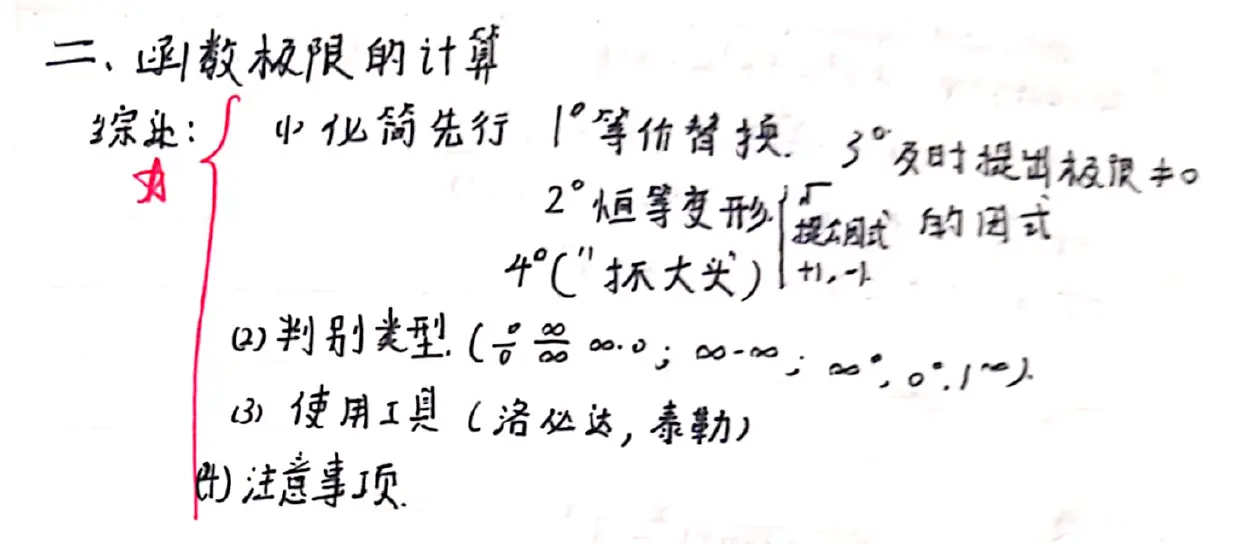 二、函数极限的计算
综述: (1) 化简先行 1° 等价替换. 3° 及时提出极限≠0
2° 恒等变形 √ 的因式
提公因式
4° ("抓大头") +1, -1
(2) 判别类型. (0/0 ∞/∞ ∞·0; ∞-∞; ∞⁰, 0⁰, 1^∞).
(3) 使用工具 (洛必达, 泰勒)
(4) 注意事项.